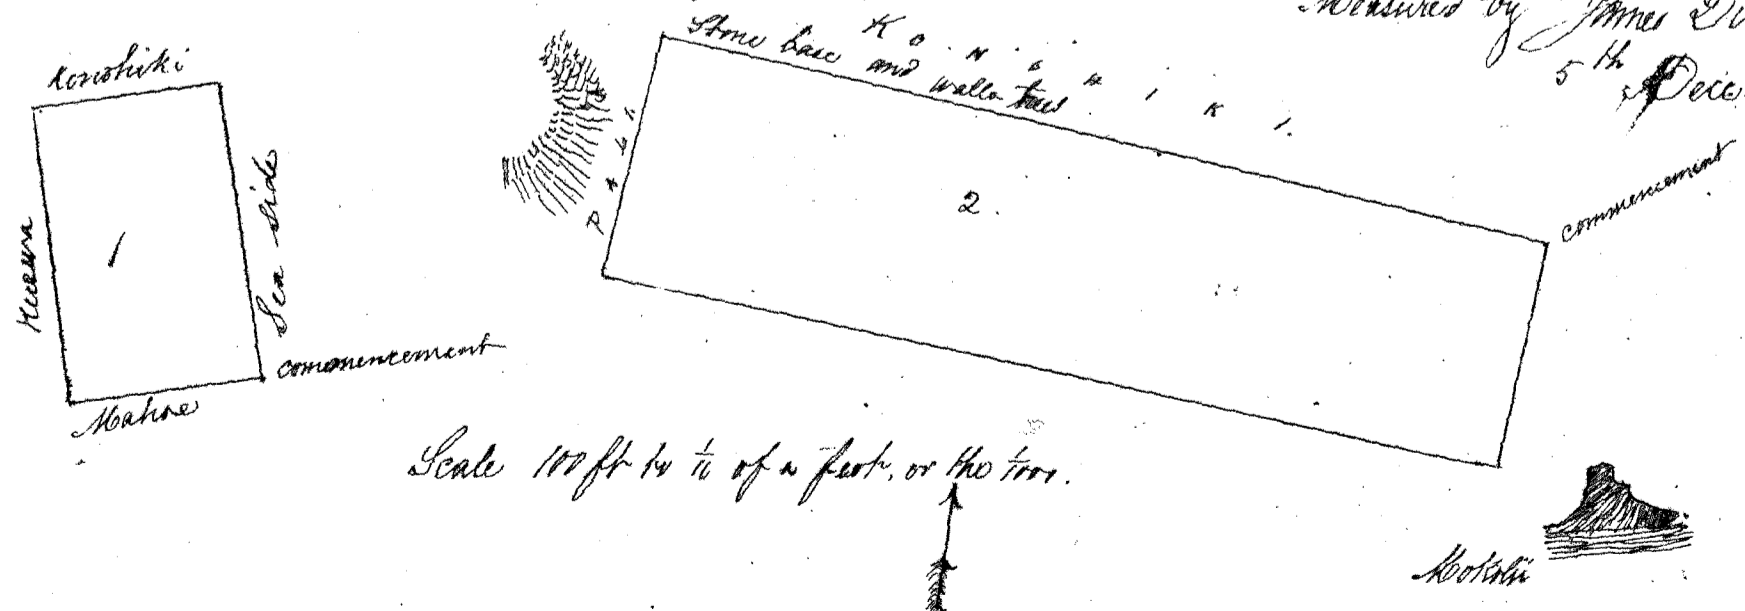 Measured by James
5th Dece
Konohiki
Kuewa
1
Sea side
commencement
Mahoe
Stone base and walla
Konohiki.
Pali
2.
commencement
Scale 100 ft to 1/10 of a foot, or the 1/1000.
Mokolii